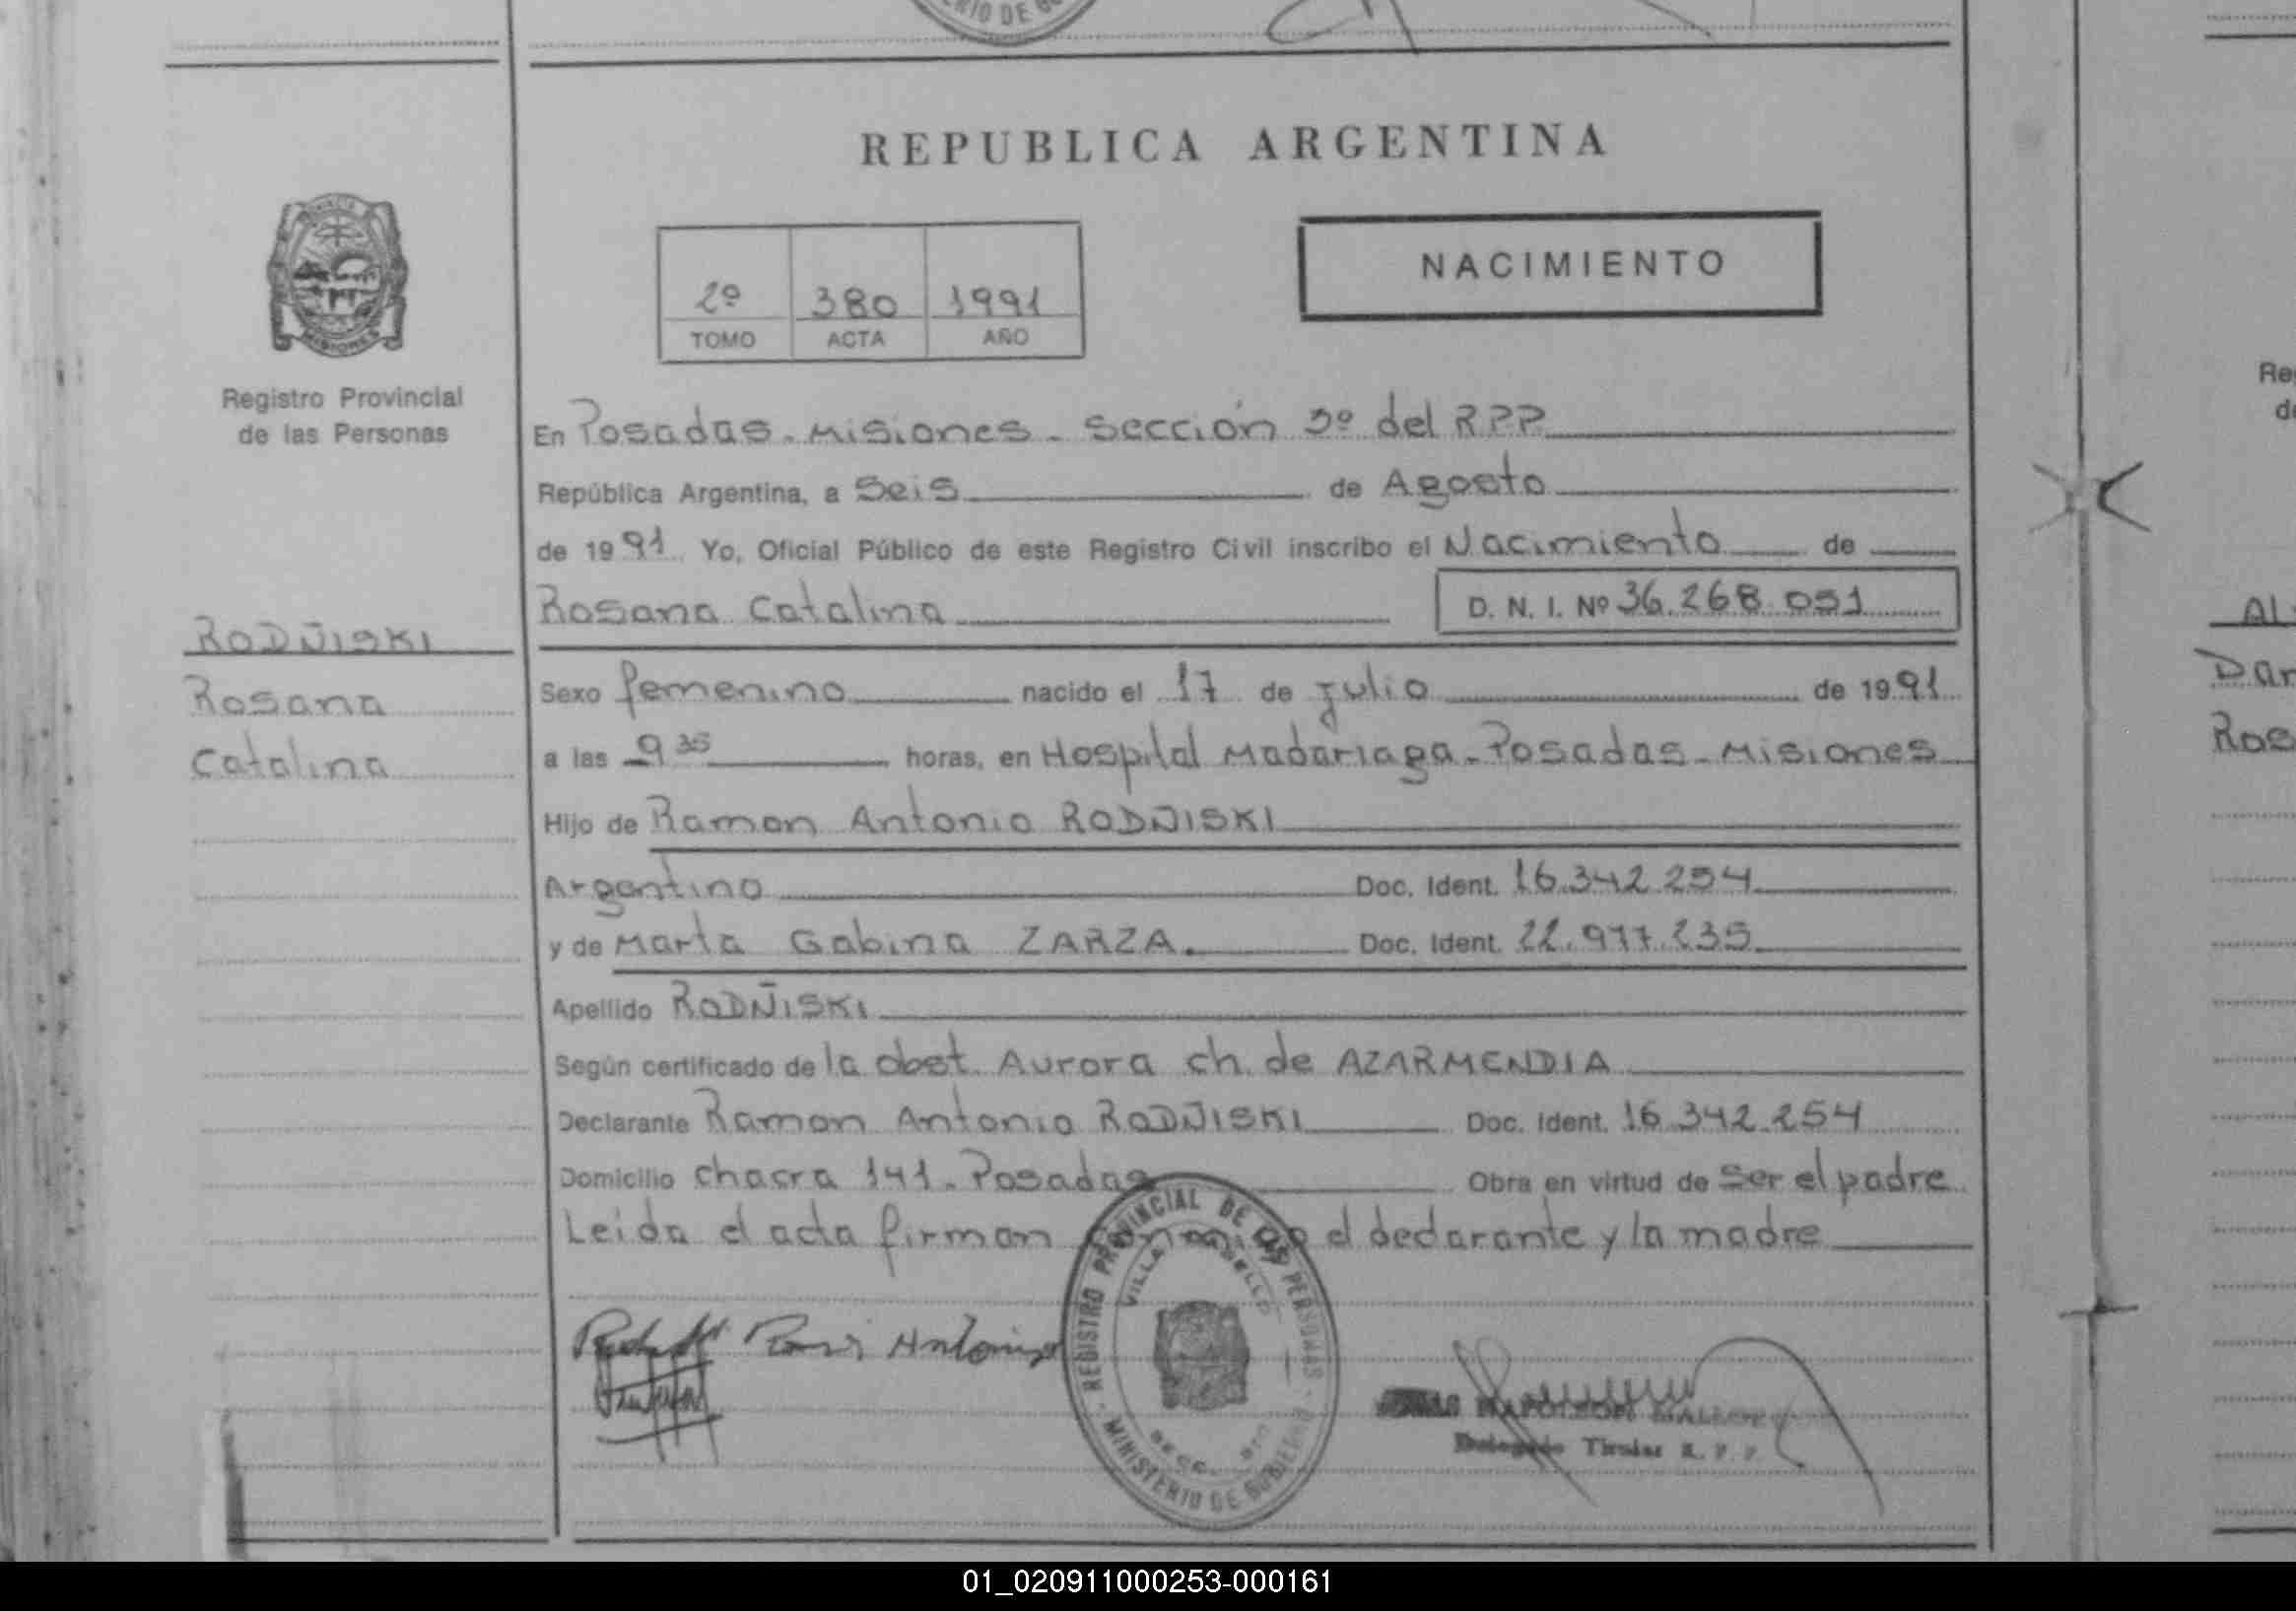 REPUBLICA ARGENTINA
NACIMIENTO
2º 380 1991
TOMO ACTA AÑO
MISIONES
Registro Provincial
de las Personas
RODÑISKI
Rosana
Catalina
En Posadas - Misiones - Sección 3º del RPP
República Argentina, a Seis de Agosto
de 1991 Yo, Oficial Público de este Registro Civil inscribo el Nacimiento de
Rosana Catalina D. N. I. Nº 36.268.051
Sexo femenino nacido el 17 de julio de 1991
a las 9 35 horas, en Hospital Madariaga - Posadas - Misiones
Hijo de Ramon Antonio RODÑISKI
Argentino Doc. Ident. 16.342.254
y de Marta Gabina ZARZA. Doc. Ident. 22.977.235
Apellido RODÑISKI
Según certificado de la obst. Aurora ch. de AZARMENDIA
Declarante Ramon Antonio RODÑISKI Doc. Ident. 16.342.254
Domicilio chacra 141 - Posadas Obra en virtud de ser el padre
Leida el acta firman conmigo el declarante y la madre
REGISTRO PROVINCIAL DE LAS PERSONAS
VILLA
MINISTERIO DE GOBIERNO
Antonio
Delegado Titular R. P. P.
Re
de
AL
Dar
Ros
01_020911000253-000161